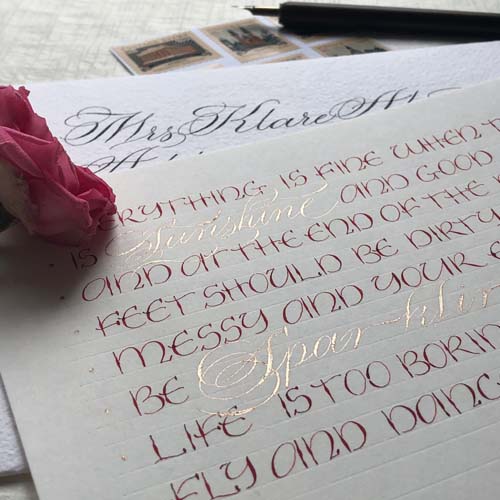 Mrs Klare
EVERYTHING IS FINE WHEN
IS Sunshine AND GOOD
AND AT THE END OF THE
FEET SHOULD BE DIRTY
MESSY AND YOUR
BE
LIFE IS TOO
FLY AND